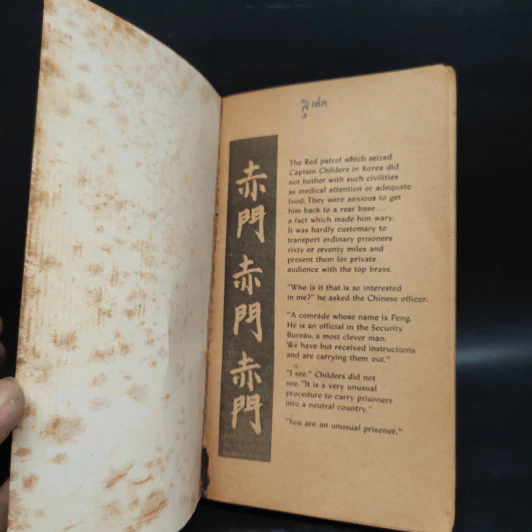 赤門赤門赤門
The Red patrol which seized
Captain Childers in Korea did
not bother with such civilities
as medical attention or adequate
food. They were anxious to get
him back to a rear base...
a fact which made him wary.
It was hardly customary to
transport ordinary prisoners
sixty or seventy miles and
present them for private
audience with the top brass.
"Who is it that is so interested
in me?" he asked the Chinese officer.
"A comrade whose name is Peng.
He is an official in the Security
Bureau, a most clever man.
We have but received instructions
and are carrying them out."
"I see." Childers did not
see. "It is a very unusual
procedure to carry prisoners
into a neutral country."
"You are an unusual prisoner."